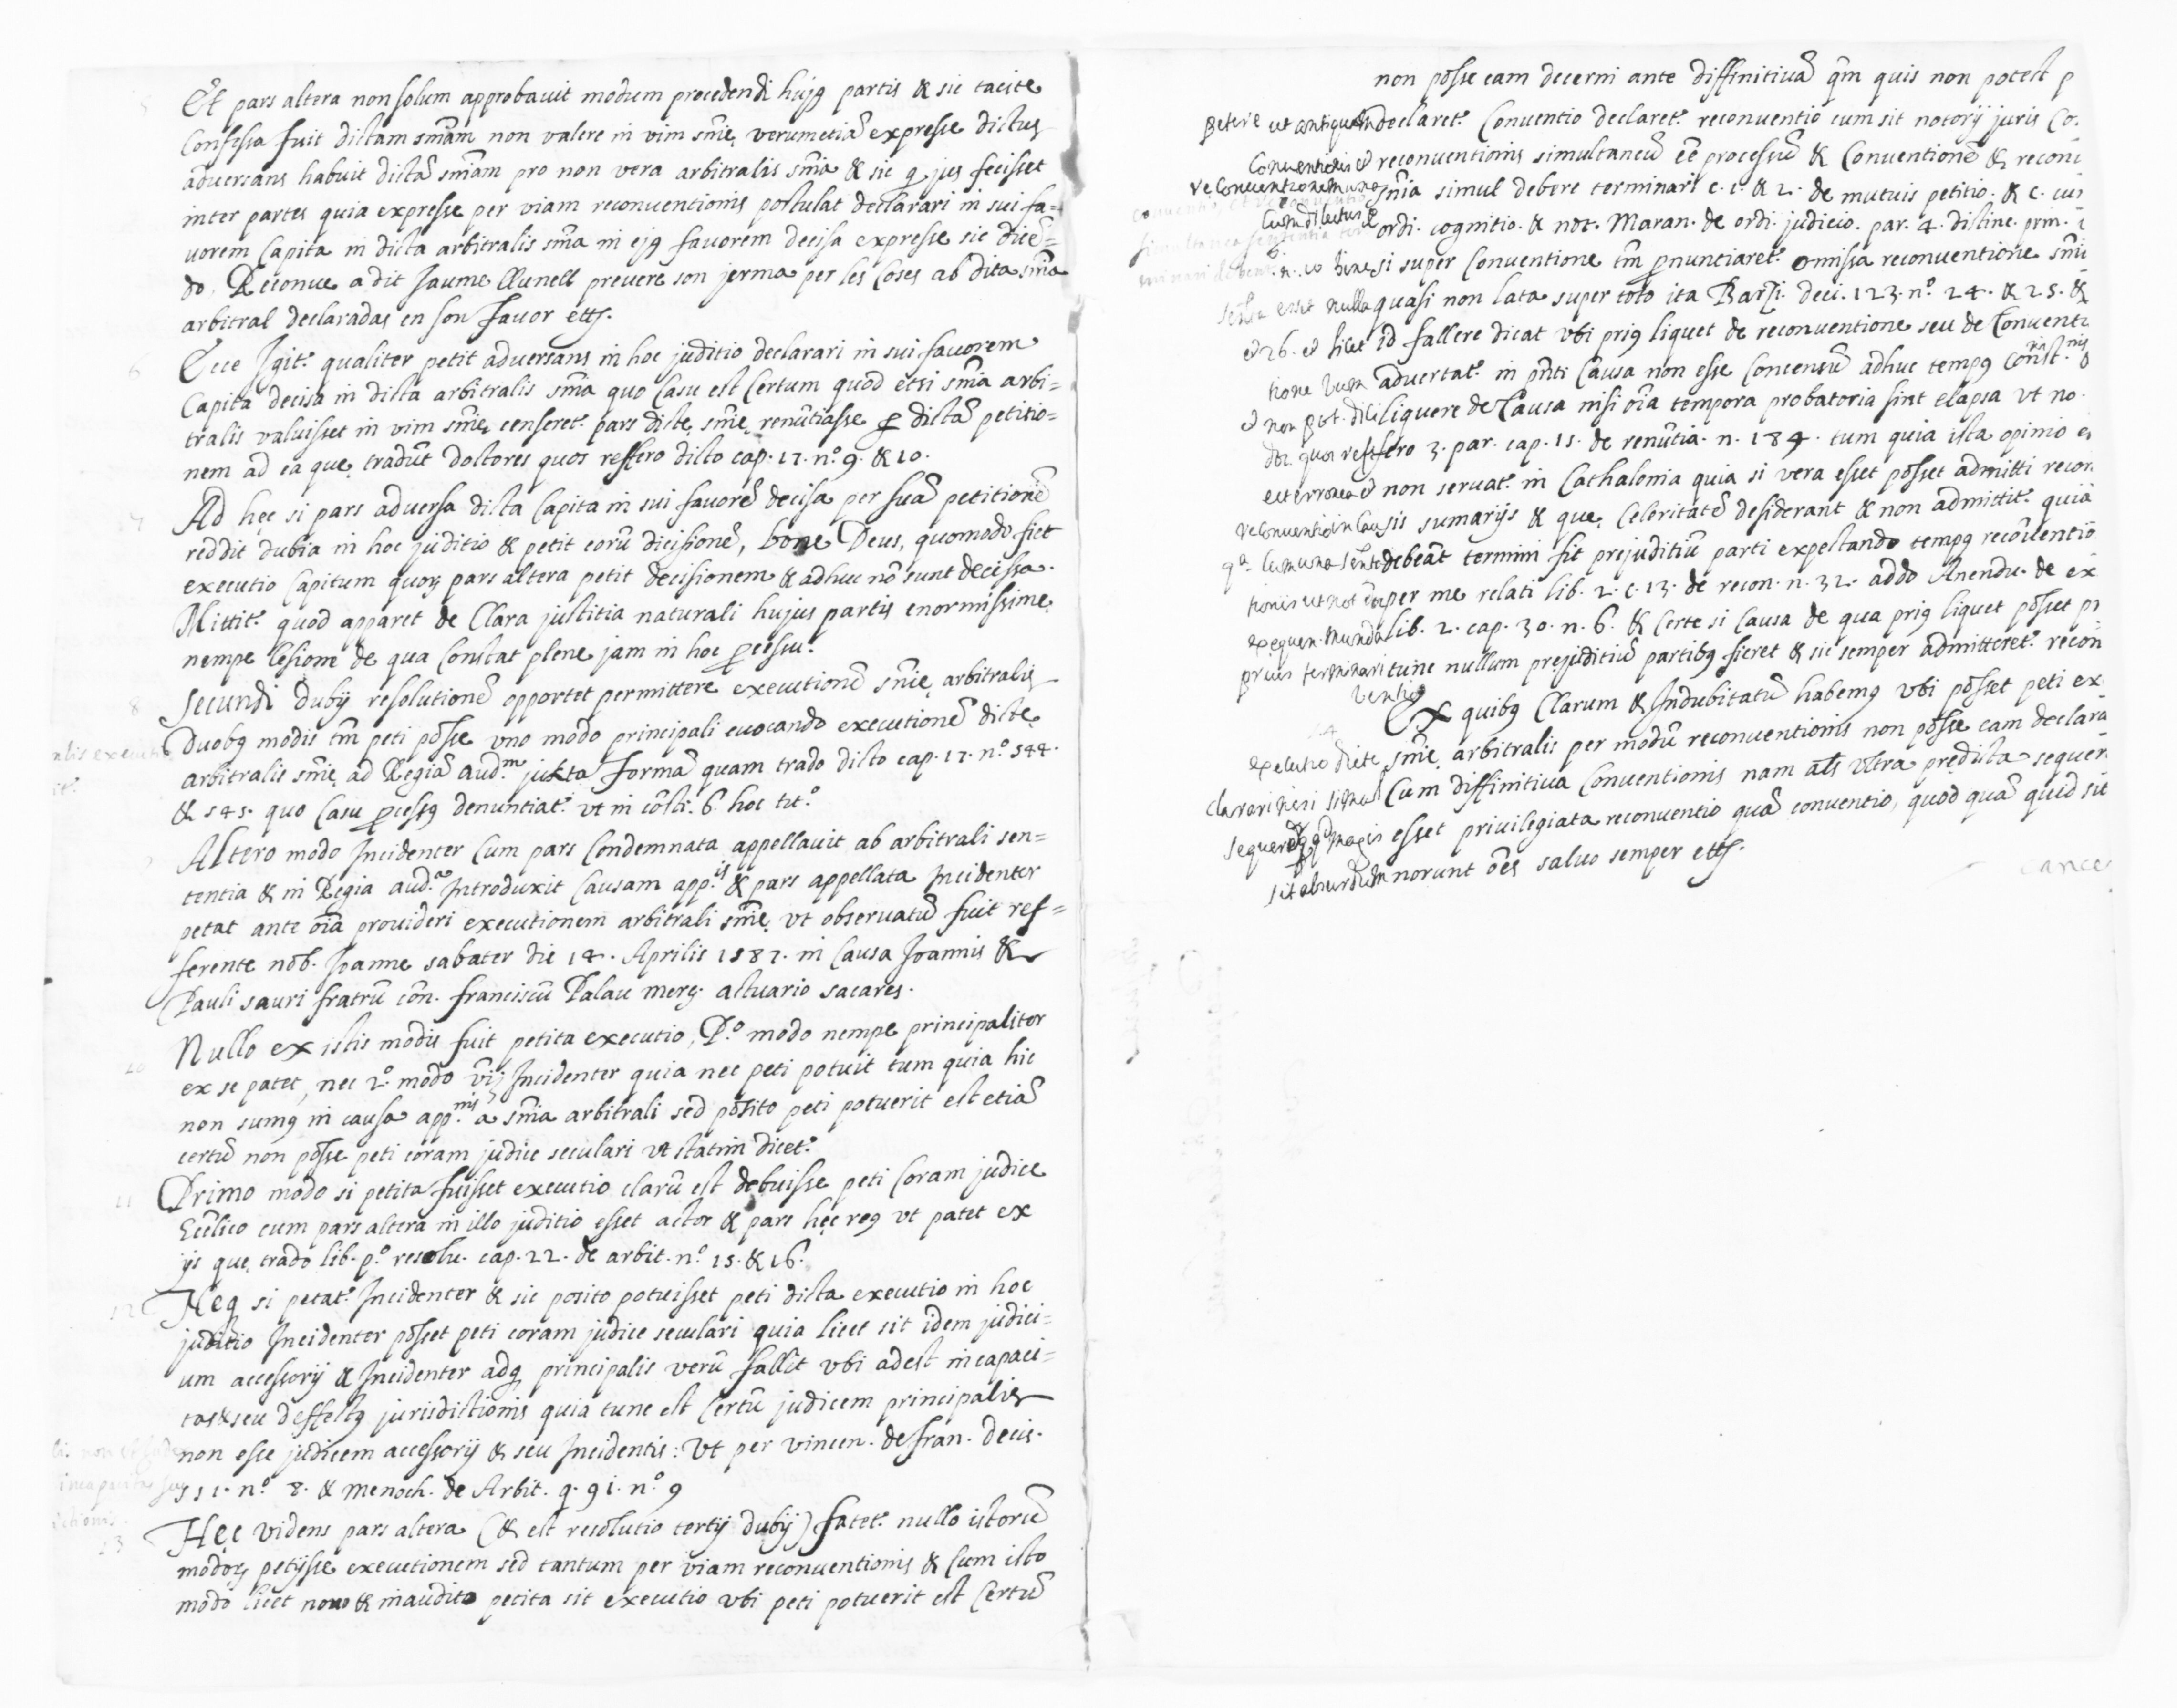 Et pars altera non solum approbavit modum procedendi hujꝯ partis & sic tacite
Confessa fuit dictam sm̃am non valere in vim sm̃ie, verumetiã expresse dictus
adversans habuit dictã sm̃am pro non vera arbitralis sm̃ia & sic q jus fecisset
inter partes quia expresse per viam reconventionis postulat declarari in sui fa=
vorem Capita in dicta arbitralis sm̃a in ejꝯ favorem decisa expresse sic dicẽ=
do, Reconve a dit Jaume Llunell prevere son jerma per les Coses ab dita sm̃a
arbitral declaradas en son favor ett.
6 Ecce Igit.r qualiter petit adversans in hoc juditio declarari in sui favorem
Capita decisa in dicta arbitralis sm̃ia quo Casu est Certum quod etsi sm̃ia arbi=
tralis valuisset in vim sm̃ie, censeret.r pars dicte, sm̃ie, renũtiasse ꝑ dictã petitio=
nem ad ea que, tradũt doctores quos reffero dicto cap. 17. nº 9. & 10.
7 Ad hęc si pars adversa dicta Capita in sui favorẽ decisa per suã petitionẽ
reddit dubia in hoc juditio & petit eorũ dicisionẽ, bone Deus, quomodo fiet
executio Capitum quorꝫ pars altera petit decisionem & adhuc nõ sunt decissa.
Mittit.r quod apparet de Clara justitia naturali hujus partis enormissime,
nempe lesione de qua Constat plene jam in hoc ꝓcessu.
8 Secundi dubij resolutionẽ opportet permittere executionẽ sm̃ie, arbitralis
Duobꝯ modis tm̃ peti posse uno modo principali evocando executionẽ dicte,
arbitralis sm̃ie, ad Regiã aud.m juxta formã quam trado dicto cap. 17. nº 544.
& 545. quo Casu ꝓcessꝯ denuntiat.r ut in cõst. 6. hoc tit.º
Altero modo Incidenter Cum pars Condemnata appellavit ab arbitrali sen=
tentia & in Regia aud.a Introduxit Causam app.is & pars appellata Incidenter
petat ante oĩa provideri executionem arbitrali sm̃ie, ut observatũ fuit ref=
ferente nob. Joanne sabater die 14. Aprilis 1587. in Causa Joannis &
Pauli sauri fratrũ cõn. franciscũ Palau merꝫ. actuario sacares.
10 Nullo ex istis modis fuit petita executio, P.º modo nempe principaliter
ex se patet, nec 2.º modo Incidenter quia nec peti potuit tum quia hic
non sumꝯ in causa app.nis a sm̃ia arbitrali sed posito peti potuerit est etiã
certũ non posse peti coram judice seculari ut statim dicet.r
11 Primo modo si petita fuisset executio clarũ est debuisse peti Coram judice
Ecc̃lico cum pars altera in illo juditio esset actor & pars hęc reꝯ ut patet ex
ijs que, trado lib. p.º resolu. cap. 22. de arbit. nº 15. & 16.
12 Neq si petat.r Incidenter & sic posito potuisset peti dicta executio in hoc
juditio Incidenter posset peti coram judice seculari quia licet sit idem judici=
um accessorij & Incidenter adꝗ principalis verũ fallit ubi adest incapaci=
tas & seu deffectꝯ jurisdictionis quia tunc est Certũ judicem principalis
non esse judicem accessorij & seu Incidentis: Ut per vincen. de fran. decis.
551. nº 8. & menoch. de Arbit. q. 91. nº 9
13 Hęc videns pars altera (& est resolutio tertij dubij) fatet.r nullo istorũ
modorꝫ petijsse executionem sed tantum per viam reconventionis & Cum isto
modo licet novo & inaudito petita sit executio ubi peti potuerit est Certũ
non posse eam decerni ante diffinitivã qm̃ quis non potest p
petere ut antiquam declaret.r Conventio declaret.r reconventio cum sit notorij juris Co.
Conventionis & reconventionis simultaneũ eẽ processũ & Conventionẽ & recon
reconventionem una sm̃ia simul debere terminari c. 1. & 2. de mutuis petitio. & c. cu
Cum dilectus de ordi. cognitio. & not. Maran. de ordi. judicio. par. 4. distinc. prm.
6. n. 10 hinc si super Conventione tm̃ ꝓnunciaret.r omissa reconventione sm̃i
esset nulla quasi non lata super toto ita Barsi. deci. 123. nº 24. & 25. &
& 26. & licet id fallere dicat ubi priꝯ liquet de reconventione seu de Conventi
tione advertat.r in pñti Causa non esse Concensũ adhuc tempꝯ
& non pot. dici liquere de Causa nisi oĩa tempora probatoria sint elapsa ut no.
quos reffero 3. par. cap. 15. de renũtia. n. 184. tum quia ista opinio e
est erronea & non servat.r in Cathalonia quia si vera esset posset admitti recon
reconventio in Causis sumarijs & que, Celeritatẽ desiderant & non admittit.r quia
q.a cum una debeãt termini fit prejuditiũ parti expectando tempꝯ recõventio
tionis ut not per me relati lib. 2. c. 13. de recon. n. 32. addo Anendu. de ex
exequen. manda lib. 2. cap. 30. n. 6. & Certe si Causa de qua priꝯ liquet posset pr
prius terminari tunc nullum prejuditiũ partibꝯ fieret & sic semper admitteret.r recon
ventio
14 Ex quibꝯ Clarum & Indubitatũ habemꝯ ubi posset peti ex
executio dicte sm̃ie, arbitralis per modũ reconventionis non posse eam declara
clarari nisi simul Cum diffinitiva Conventionis nam als ultra prędicta sequer
sequer magis esset privilegiata reconventio quã conventio, quod quã quid sit
sit absurdum norunt oẽs salvo semper ett.